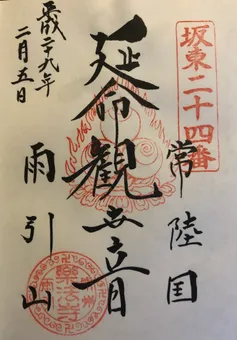 坂東二十四番
常陸国
延命観世音
雨引山
樂法寺
平成二十九年
二月五日